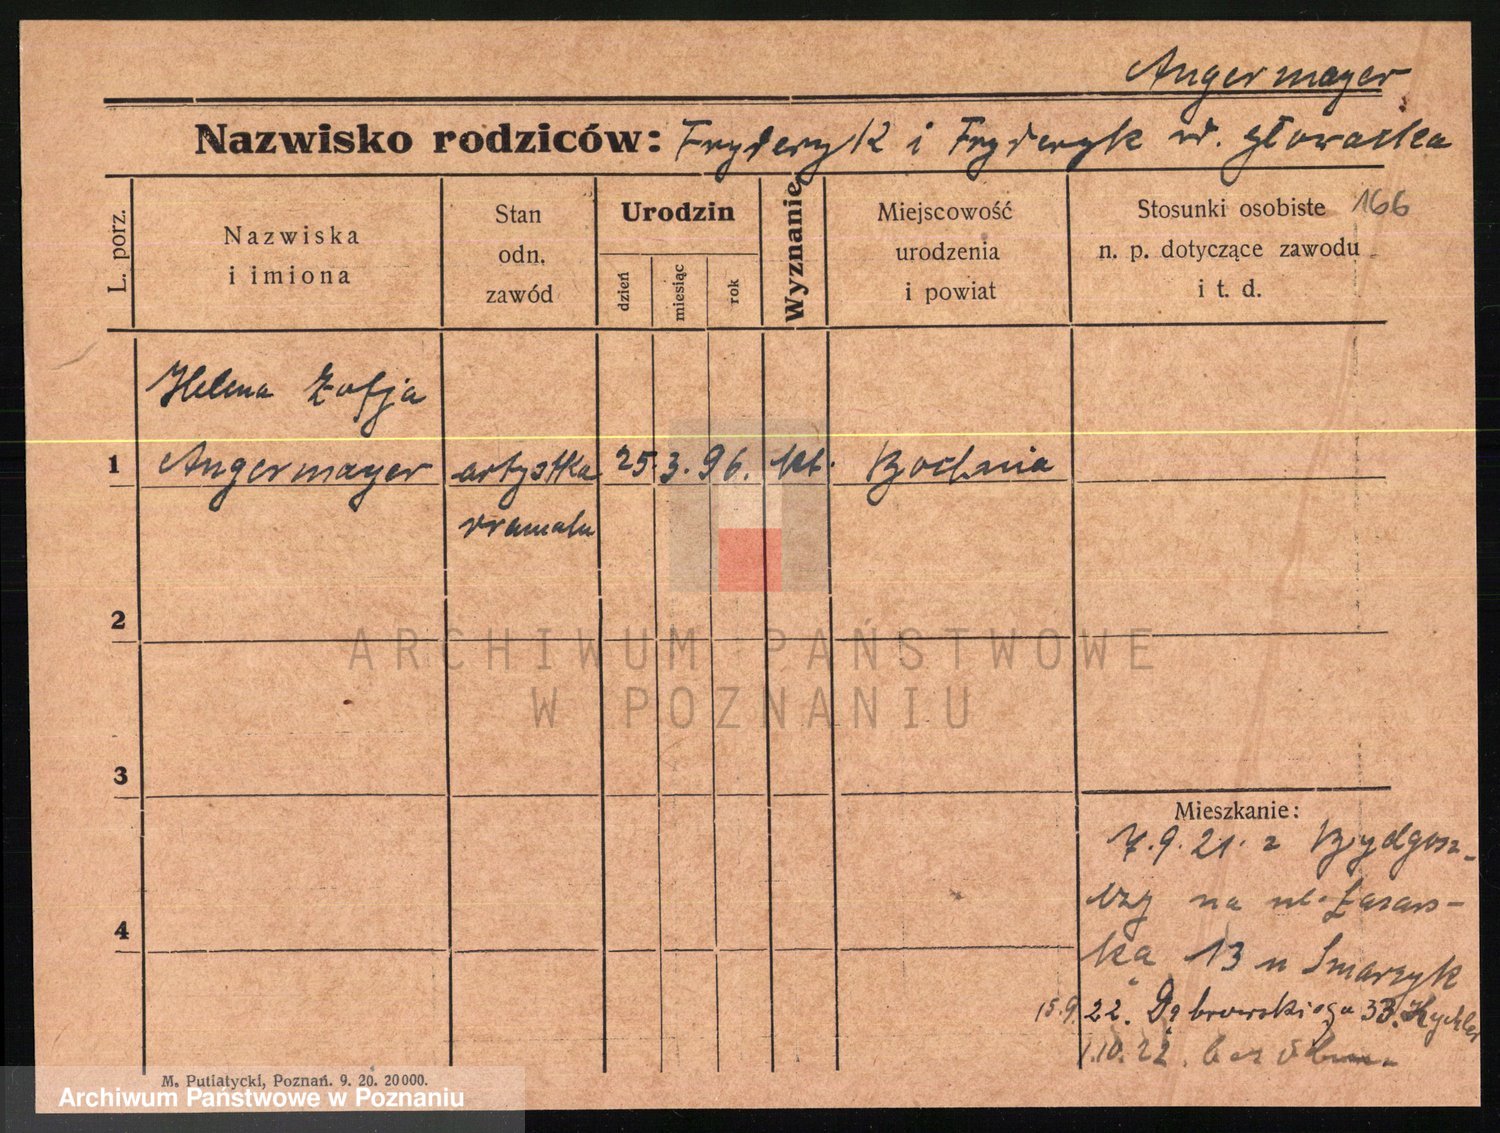 Angermayer
Nazwisko rodziców: Fryderyk i Fryderyk z d. Głowacka
L. porz.
Nazwiska
i imiona
Stan
odn.
zawód
Urodzin
dzień
miesiąc
rok
Wyznanie
Miejscowość
urodzenia
i powiat
Stosunki osobiste
n. p. dotyczące zawodu
i t. d.
166
Helena Zofja
1 Angermayer artystka 25. 3. 96. kt. Bochnia
dramatu
2
3
4
Mieszkanie:
7.9.21. z Bydgosz-
czy na ul. Łazars-
ką 13 u Smarzyk
15.9.22. Dąbrowskiego 33. Kychler
1.10.22. bez
M. Putiatycki, Poznań. 9. 20. 20000.
ARCHIWUM PAŃSTWOWE
W POZNANIU
Archiwum Państwowe w Poznaniu